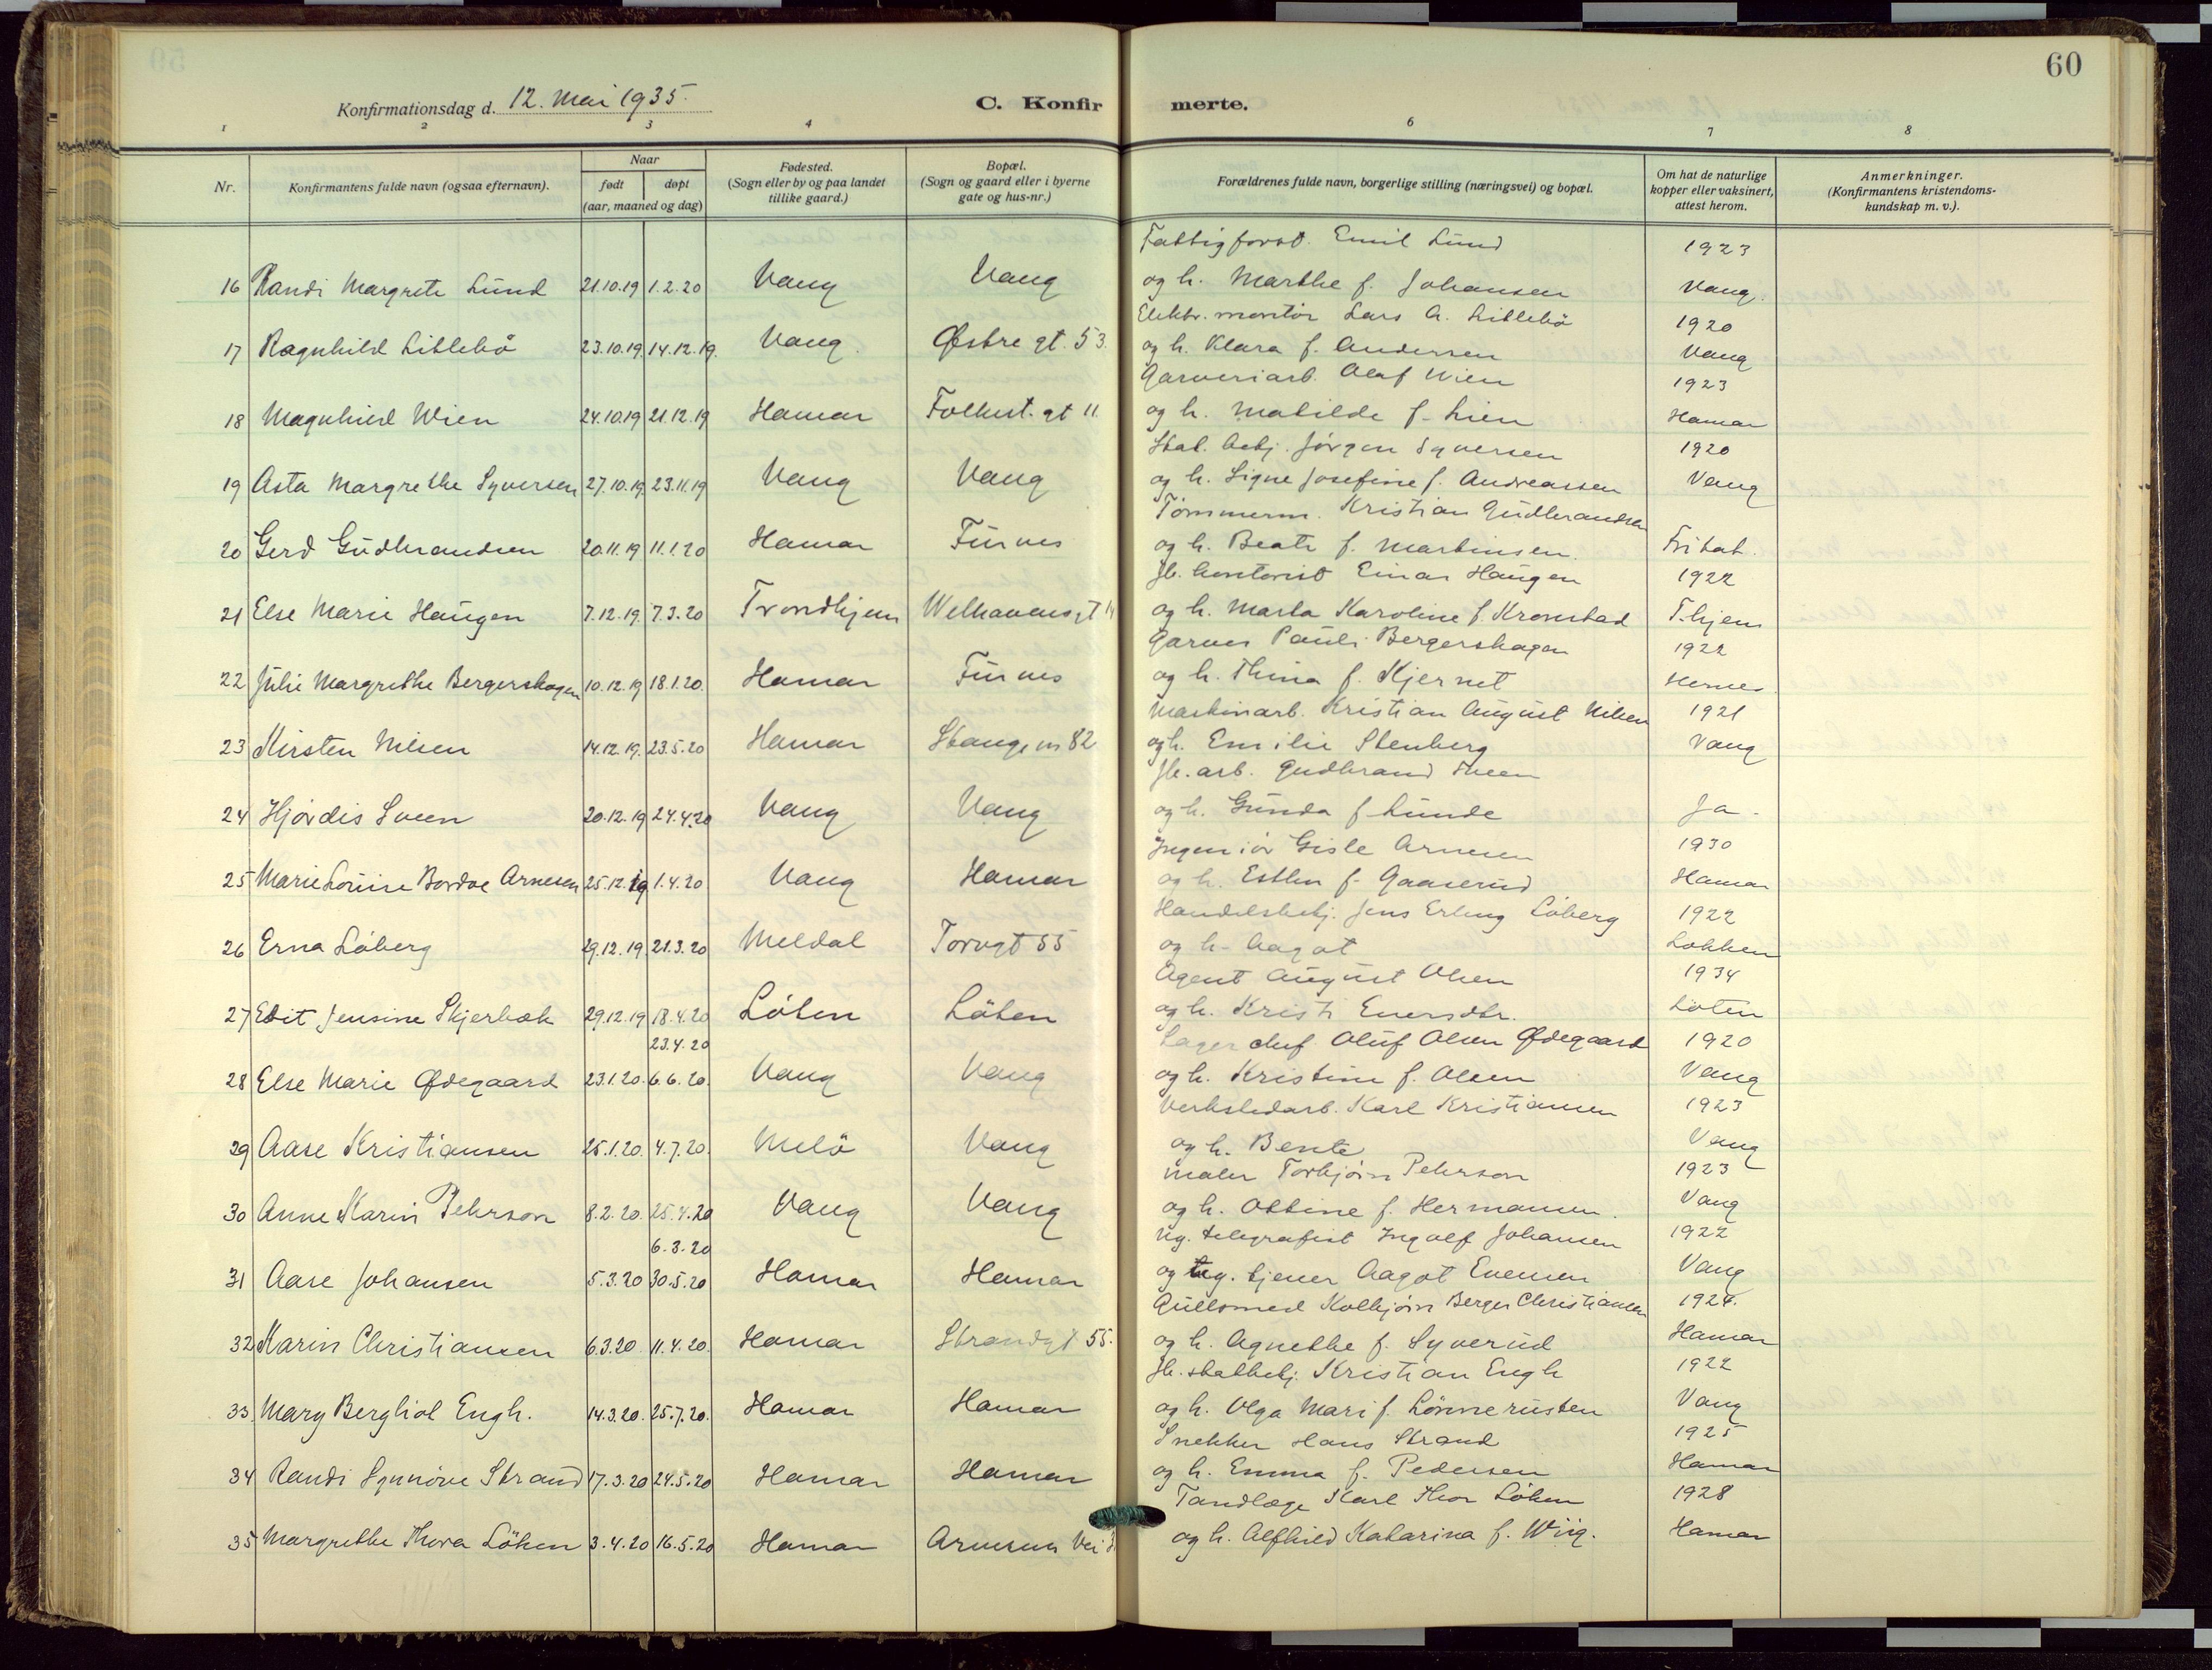 60
Konfirmationsdag d. 12. Mai 1935.
C. Konfirmerte.
1 2 3 4 6 7 8
Nr.
Konfirmantens fulde navn (ogsaa efternavn).
Naar
født døpt
(aar, maaned og dag)
Fødested.
(Sogn eller by og paa landet
tillike gaard.)
Bopæl.
(Sogn og gaard eller i byerne
gate og hus-nr.)
Forældrenes fulde navn, borgerlige stilling (næringsvei) og bopæl.
Om hat de naturlige
kopper eller vaksinert,
attest herom.
Anmerkninger.
(Konfirmantens kristendoms-
kundskap m. v.).
Fattigforst. Emil Lund 1923
16 Randi Margrete Lund 21.10.19 1.2.20 Vang Vang og h. Marthe f. Johansen Vang.
Elektr. montör Lars A. Lillebö 1920
17 Ragnhild Lillebö 23.10.19. 14.12.19. Vang. Østre gt. 53. og h. Klara f. Andersen Vang
Garveriarb. Olaf Wien 1923
18 Magnhild Wien 24.10.19 21.12.19 Hamar Folkest. gt 11. og h. Matilde f. Lien Hamar
Stat. betj. Jørgen Syversen 1920
19 Asta Margrethe Syversen 27.10.19. 23.11.19 Vang Vang og h. Signe Josefine f. Andreassen Vang
Tömmerm. Kristian Gudbrandsen
20 Gerd Gudbrandsen 20.11.19 11.1.20 Hamar Furnes og h. Beate f. Martinsen. Fritat.
Jb. kontorist Einar Haugen 1922
21 Else Marie Haugen 7.12.19. 7.3.20 Trondhjem Welhavensgt 14 og h. Marta Karoline f. Kronstad T.hjem
Garver Pauli Bergerskogen 1922
22 Julie Margrethe Bergerskogen 10.12.19 18.1.20. Hamar Furnes og h. Thina f. Kjernet
Maskinarb. Kristian August Nilsen 1921
23 Kirsten Nilsen 14.12.19. 23.5.20 Hamar Stangevn 82 og h. Emilie Stenberg Vang
Jb. arb. Gudbrand Sveen
24 Hjördis Sveen 20.12.19 24.4.20 Vang Vang og h. Gunda f Lunde Ja.
Ingeniör Gisle Arnesen 1930
25 Marie Louise Bordoe Arnesen 25.12.19 1.4.20 Vang Hamar og h. Esther f. Gaaserud Hamar
Handelsbetj. Jens Erling Löberg 1922
26 Erna Löberg 29.12.19. 21.3.20 Meldal Torvgt 55 og h. Aagot Løkken
Agent August Olsen 1934
27 Edit Jensine Skjerbæk 29.12.19 18.4.20 Löten Löten og h. Kristi Enersdtr. Löten
23.4.20 Lagerchef Oluf Olsen Ødegaard 1920
28 Else Marie Ødegaard 23.1.20. 6.6.20. Vang Vang og h. Kristine f. Olsen Vang
Verkstedarb. Karl Kristiansen 1923
29 Aase Kristiansen 25.1.20. 4.7.20. Melö Vang og h. Bente Vang
Maler Torbjörn Pehrson 1923
30 Anne Karin Pehrson 8.2.20. 25.4.20 Vang Vang og h. Ottine f. Hermansen. Vang
6.3.20 Ug. telegrafist Ingolf Johansen 1922
31 Aase Johansen 5.3.20 30.5.20 Hamar Hamar og ug. tjener Aagot Evensen Vang
Gullsmed Kolbjörn Berger Christiansen 1924.
32 Karin Christiansen 6.3.20 11.4.20. Hamar Strandgt 55. og h. Agnethe f. Syverud Hamar
Jb. stallbetj. Kristian Engh 1922
33 Mary Bergliot Engh. 14.3.20. 25.7.20. Hamar Hamar og h. Olga Mari f. Lönnerusten Vang
Snekker Hans Strand 1925
34 Randi Synnöve Strand 17.3.20 24.5.20 Hamar Hamar og h. Emma f. Pedersen Hamar
Tandlæge Karl Thor Löken 1928
35 Margrethe Thora Löken 3.4.20 16.5.20 Hamar Arnesens Vei og h. Alfhild Katarina f. Wiig. Hamar